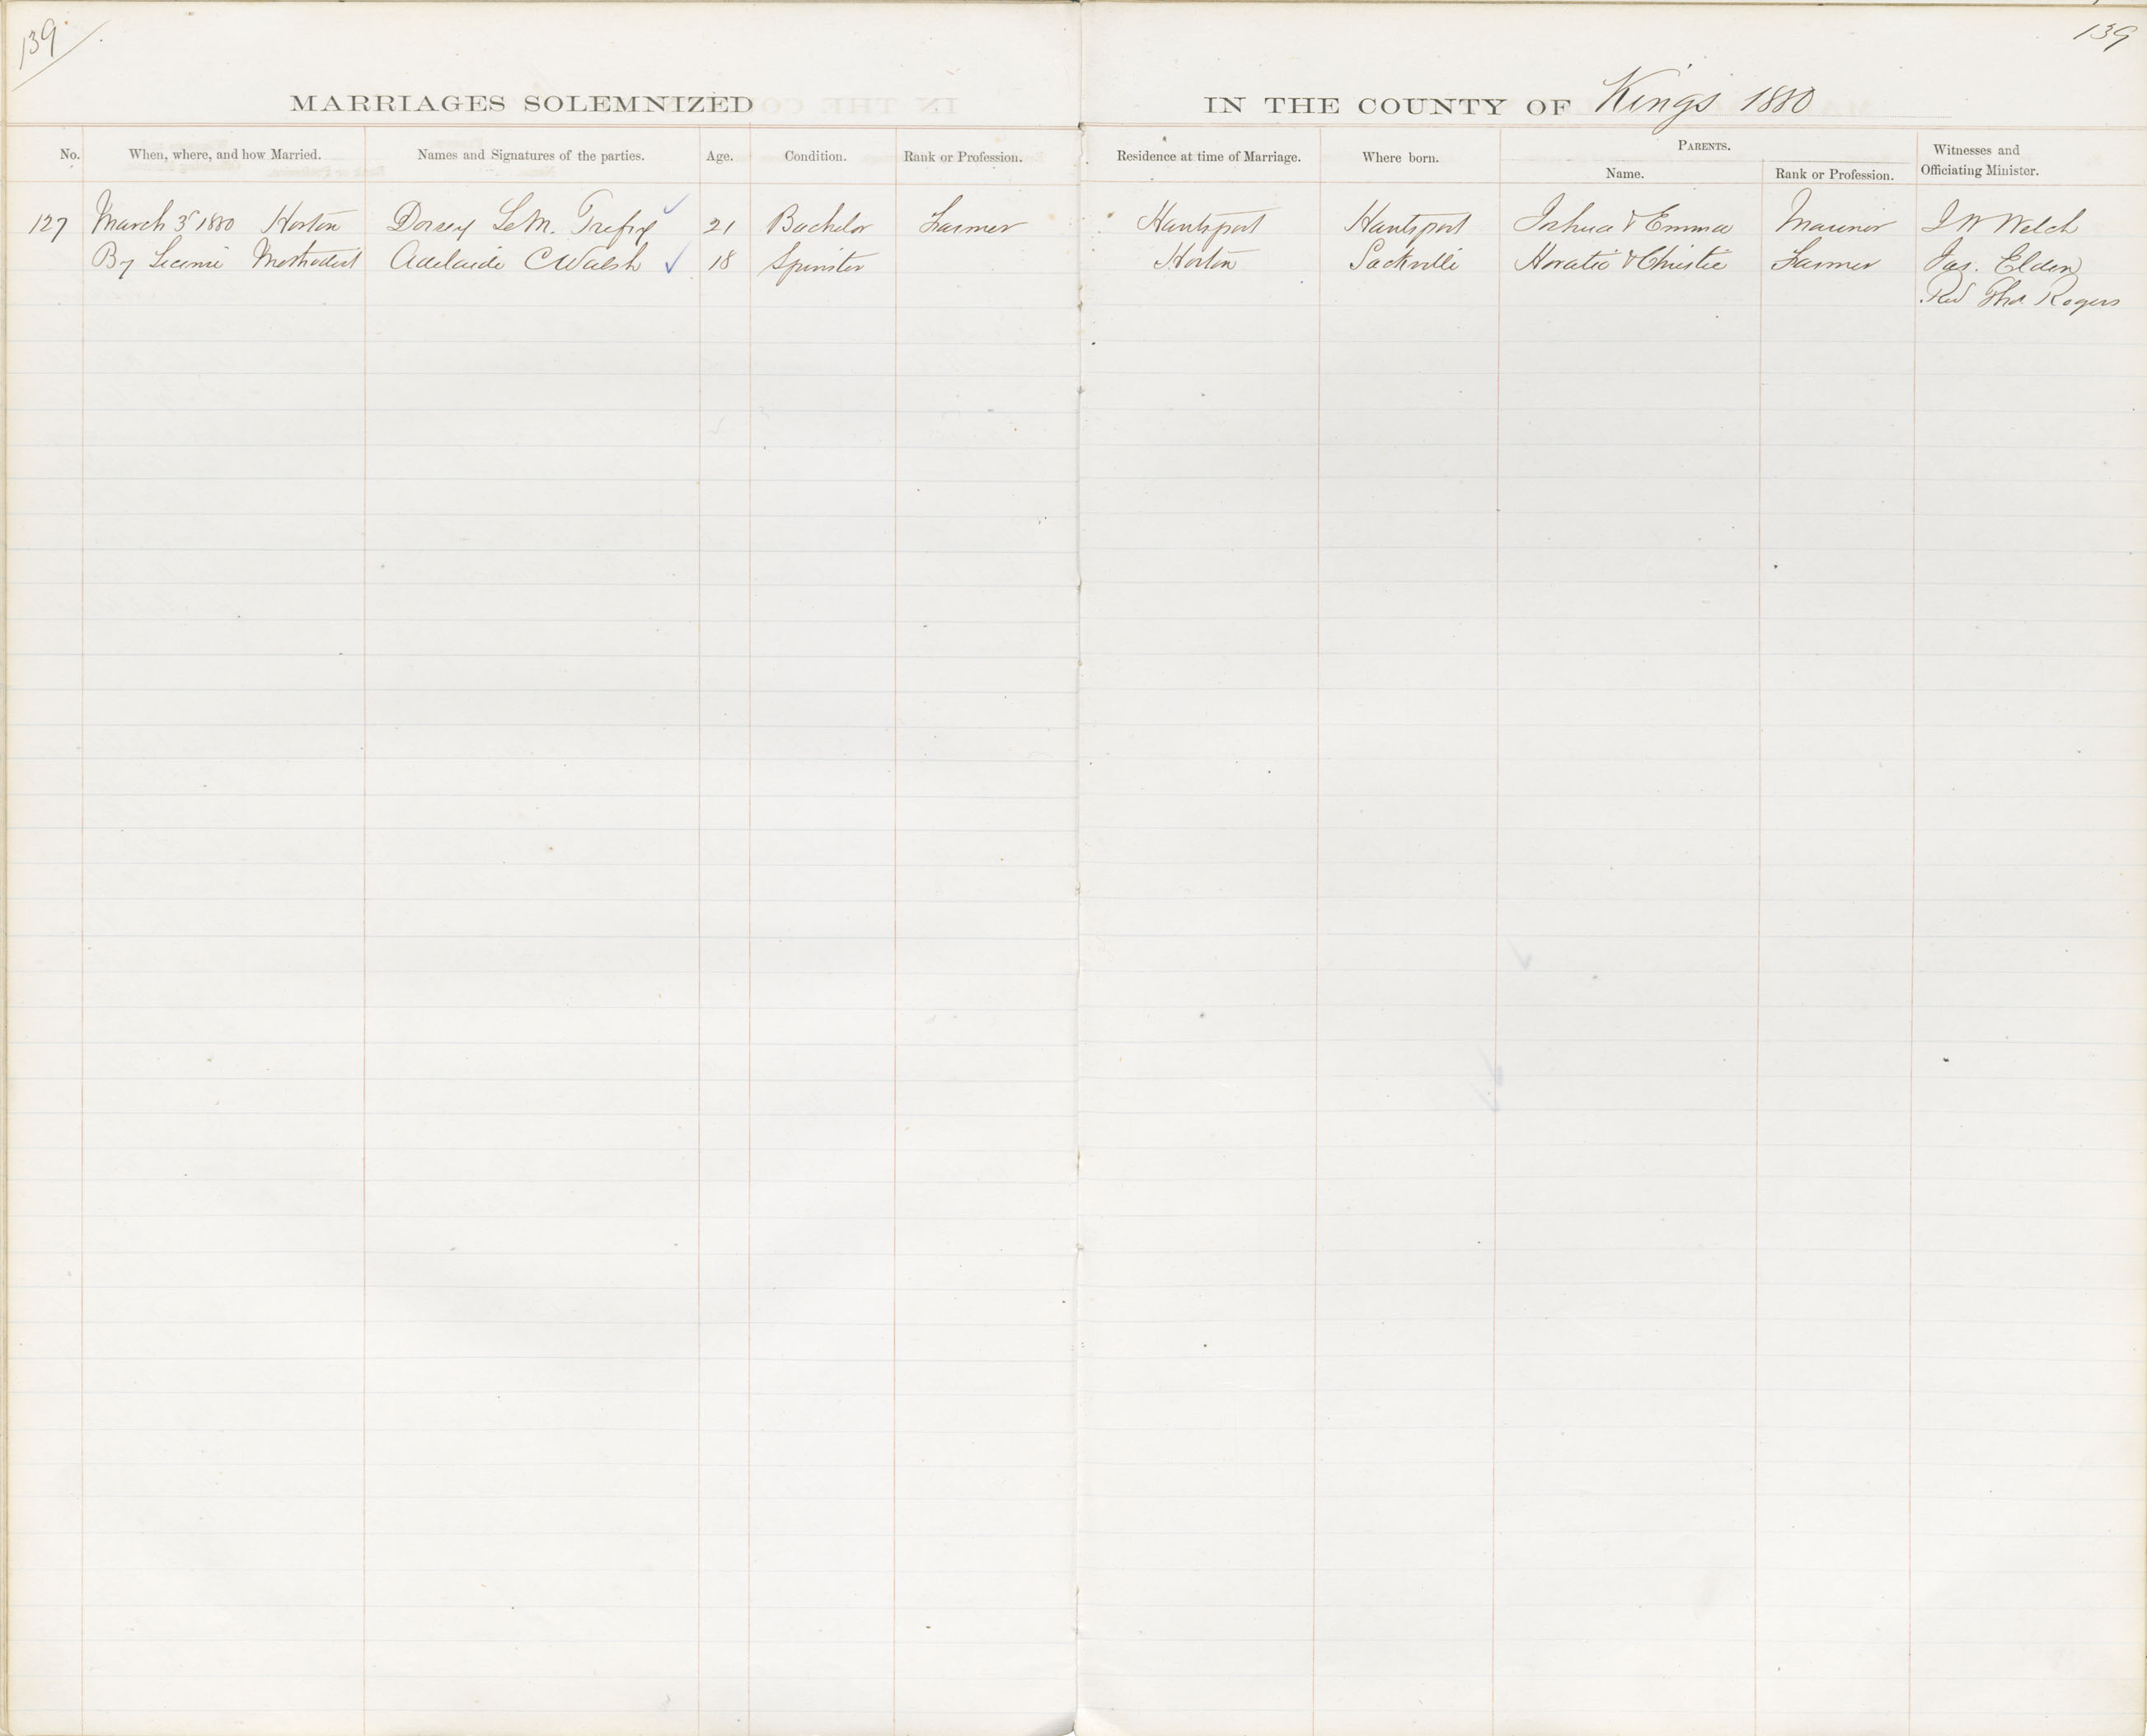 139
139
MARRIAGES SOLEMNIZED IN THE COUNTY OF Kings 1880
No. When, where, and how Married. Names and Signatures of the parties. Age. Condition. Rank or Profession. Residence at time of Marriage. Where born. PARENTS. Name. Rank or Profession. Witnesses and Officiating Minister.
127 March 3 1880 Horton Dorsey LeM. Trefry 21 Bachelor Farmer Hantsport Hantsport Joshua & Emma Mariner J W Welch
By License Methodist Adelaide C Walsh 18 Spinster Horton Sackville Horatio & Christie Farmer Jas. Elden
Rev Tho. Rogers